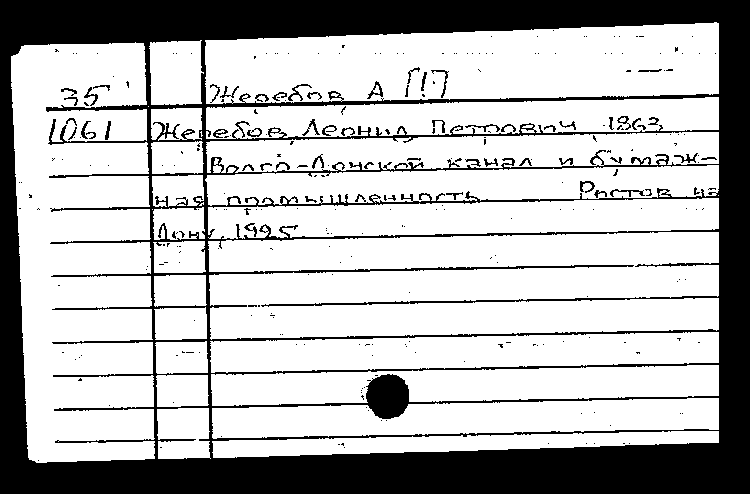 35 Жеребов, А [!]
1061 Жеребов, Леонид Петрович, 1863
Волго-Донской канал и бумаж-
ная промышленность Ростов на
Дону, 1925